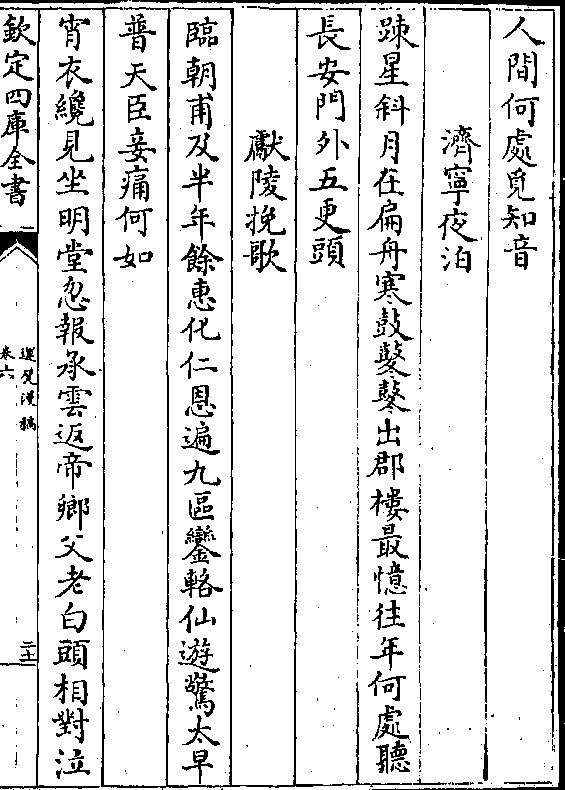 人間何處覓知音
濟寧夜泊
踈星斜月在扁舟寒鼓鼕鼕出郡樓最憶往年何處聽
長安門外五更頭
獻陵挽歌
臨朝甫及半年餘惠化仁恩遍九區鑾輅仙遊驚太早
普天臣妾痛何如
宵衣纔見坐明堂忽報承雲返帝鄉父老白頭相對泣
欽定四庫全書
卷六